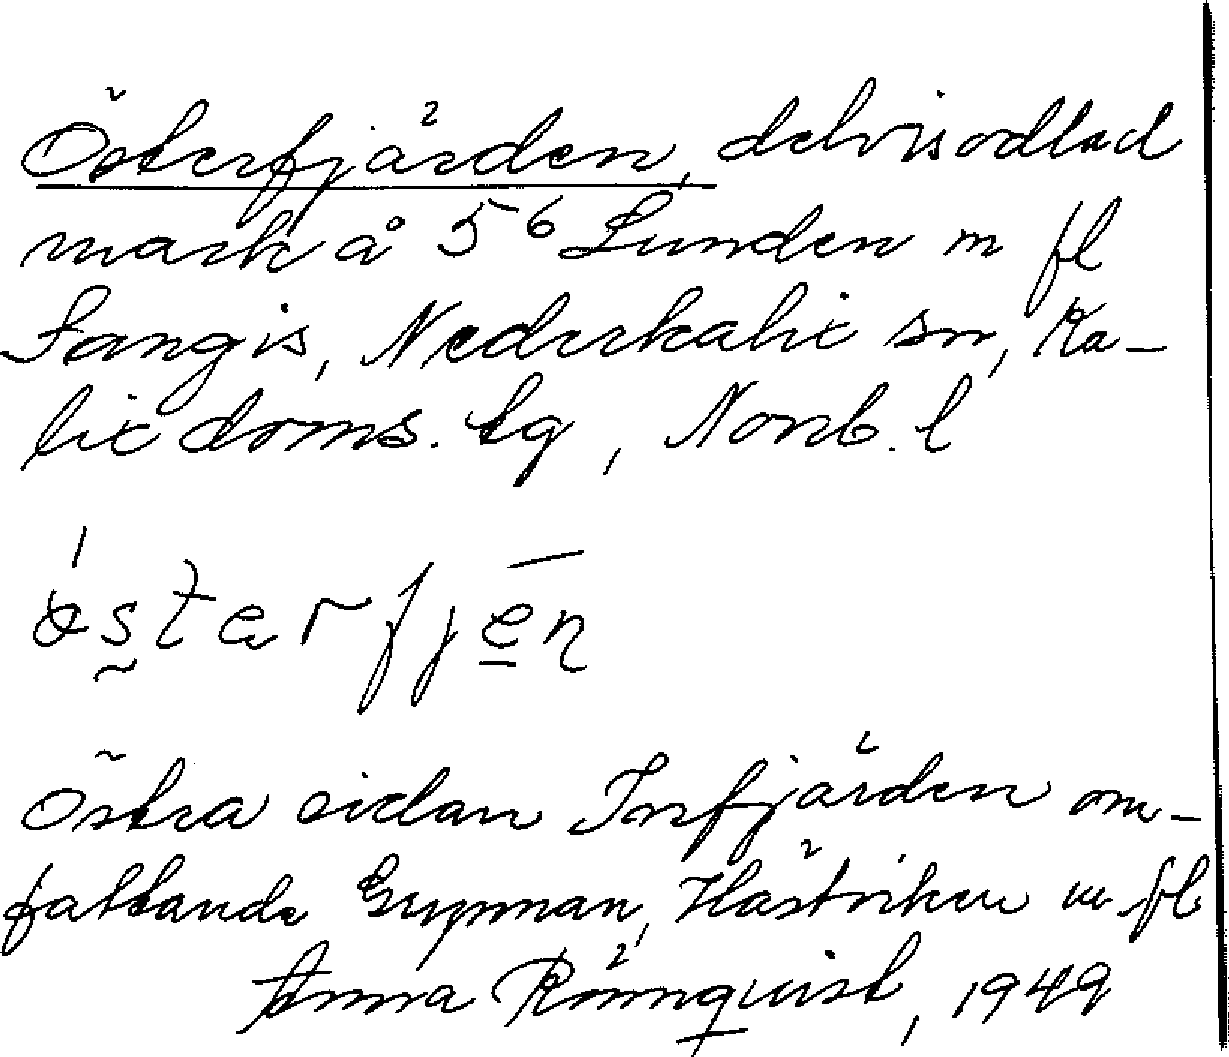 Österfjärden, delvis odlad
mark å 5⁶ Lunden m fl
Sangis, Nederkalix sn, Ka-
lix doms. tg, Norrb. l
östərfjēn
Östra sidan Torfjärden om-
fattande Grypnan, Hästviken m fl
Anna Rönnquist, 1949